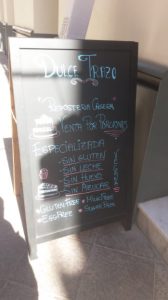 DULCE TRIZO
REPOSTERIA CASERA
VENTA POR PORCIONES
ESPECIALIZADA
- SIN GLUTEN
- SIN LECHE
- SIN HUEVO
- SIN AZUCAR
GLUTEN FREE MILK FREE
EGG FREE SUGAR FREE